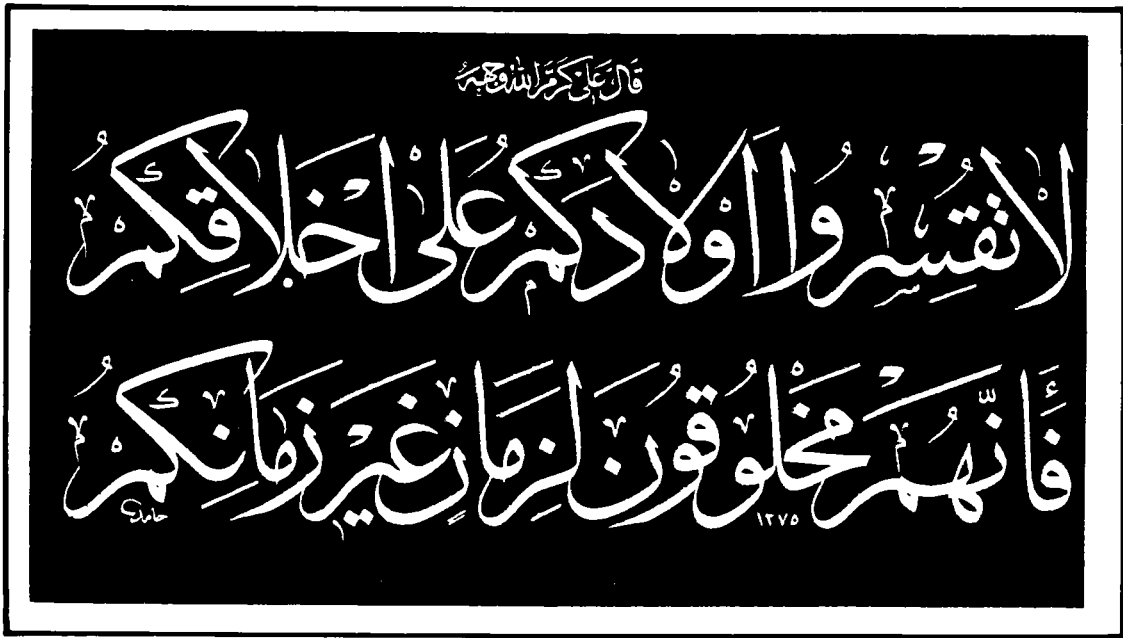 قَالَ عَلِيٌّ كَرَّمَ اللّٰهُ وَجْهَهُ
لَا تَقْسِرُوا أَوْلَادَكُمْ عَلَى أَخْلَاقِكُمْ
فَإِنَّهُمْ مَخْلُوقُونَ لِزَمَانٍ غَيْرِ زَمَانِكُمْ
١٣٧٥ حامد